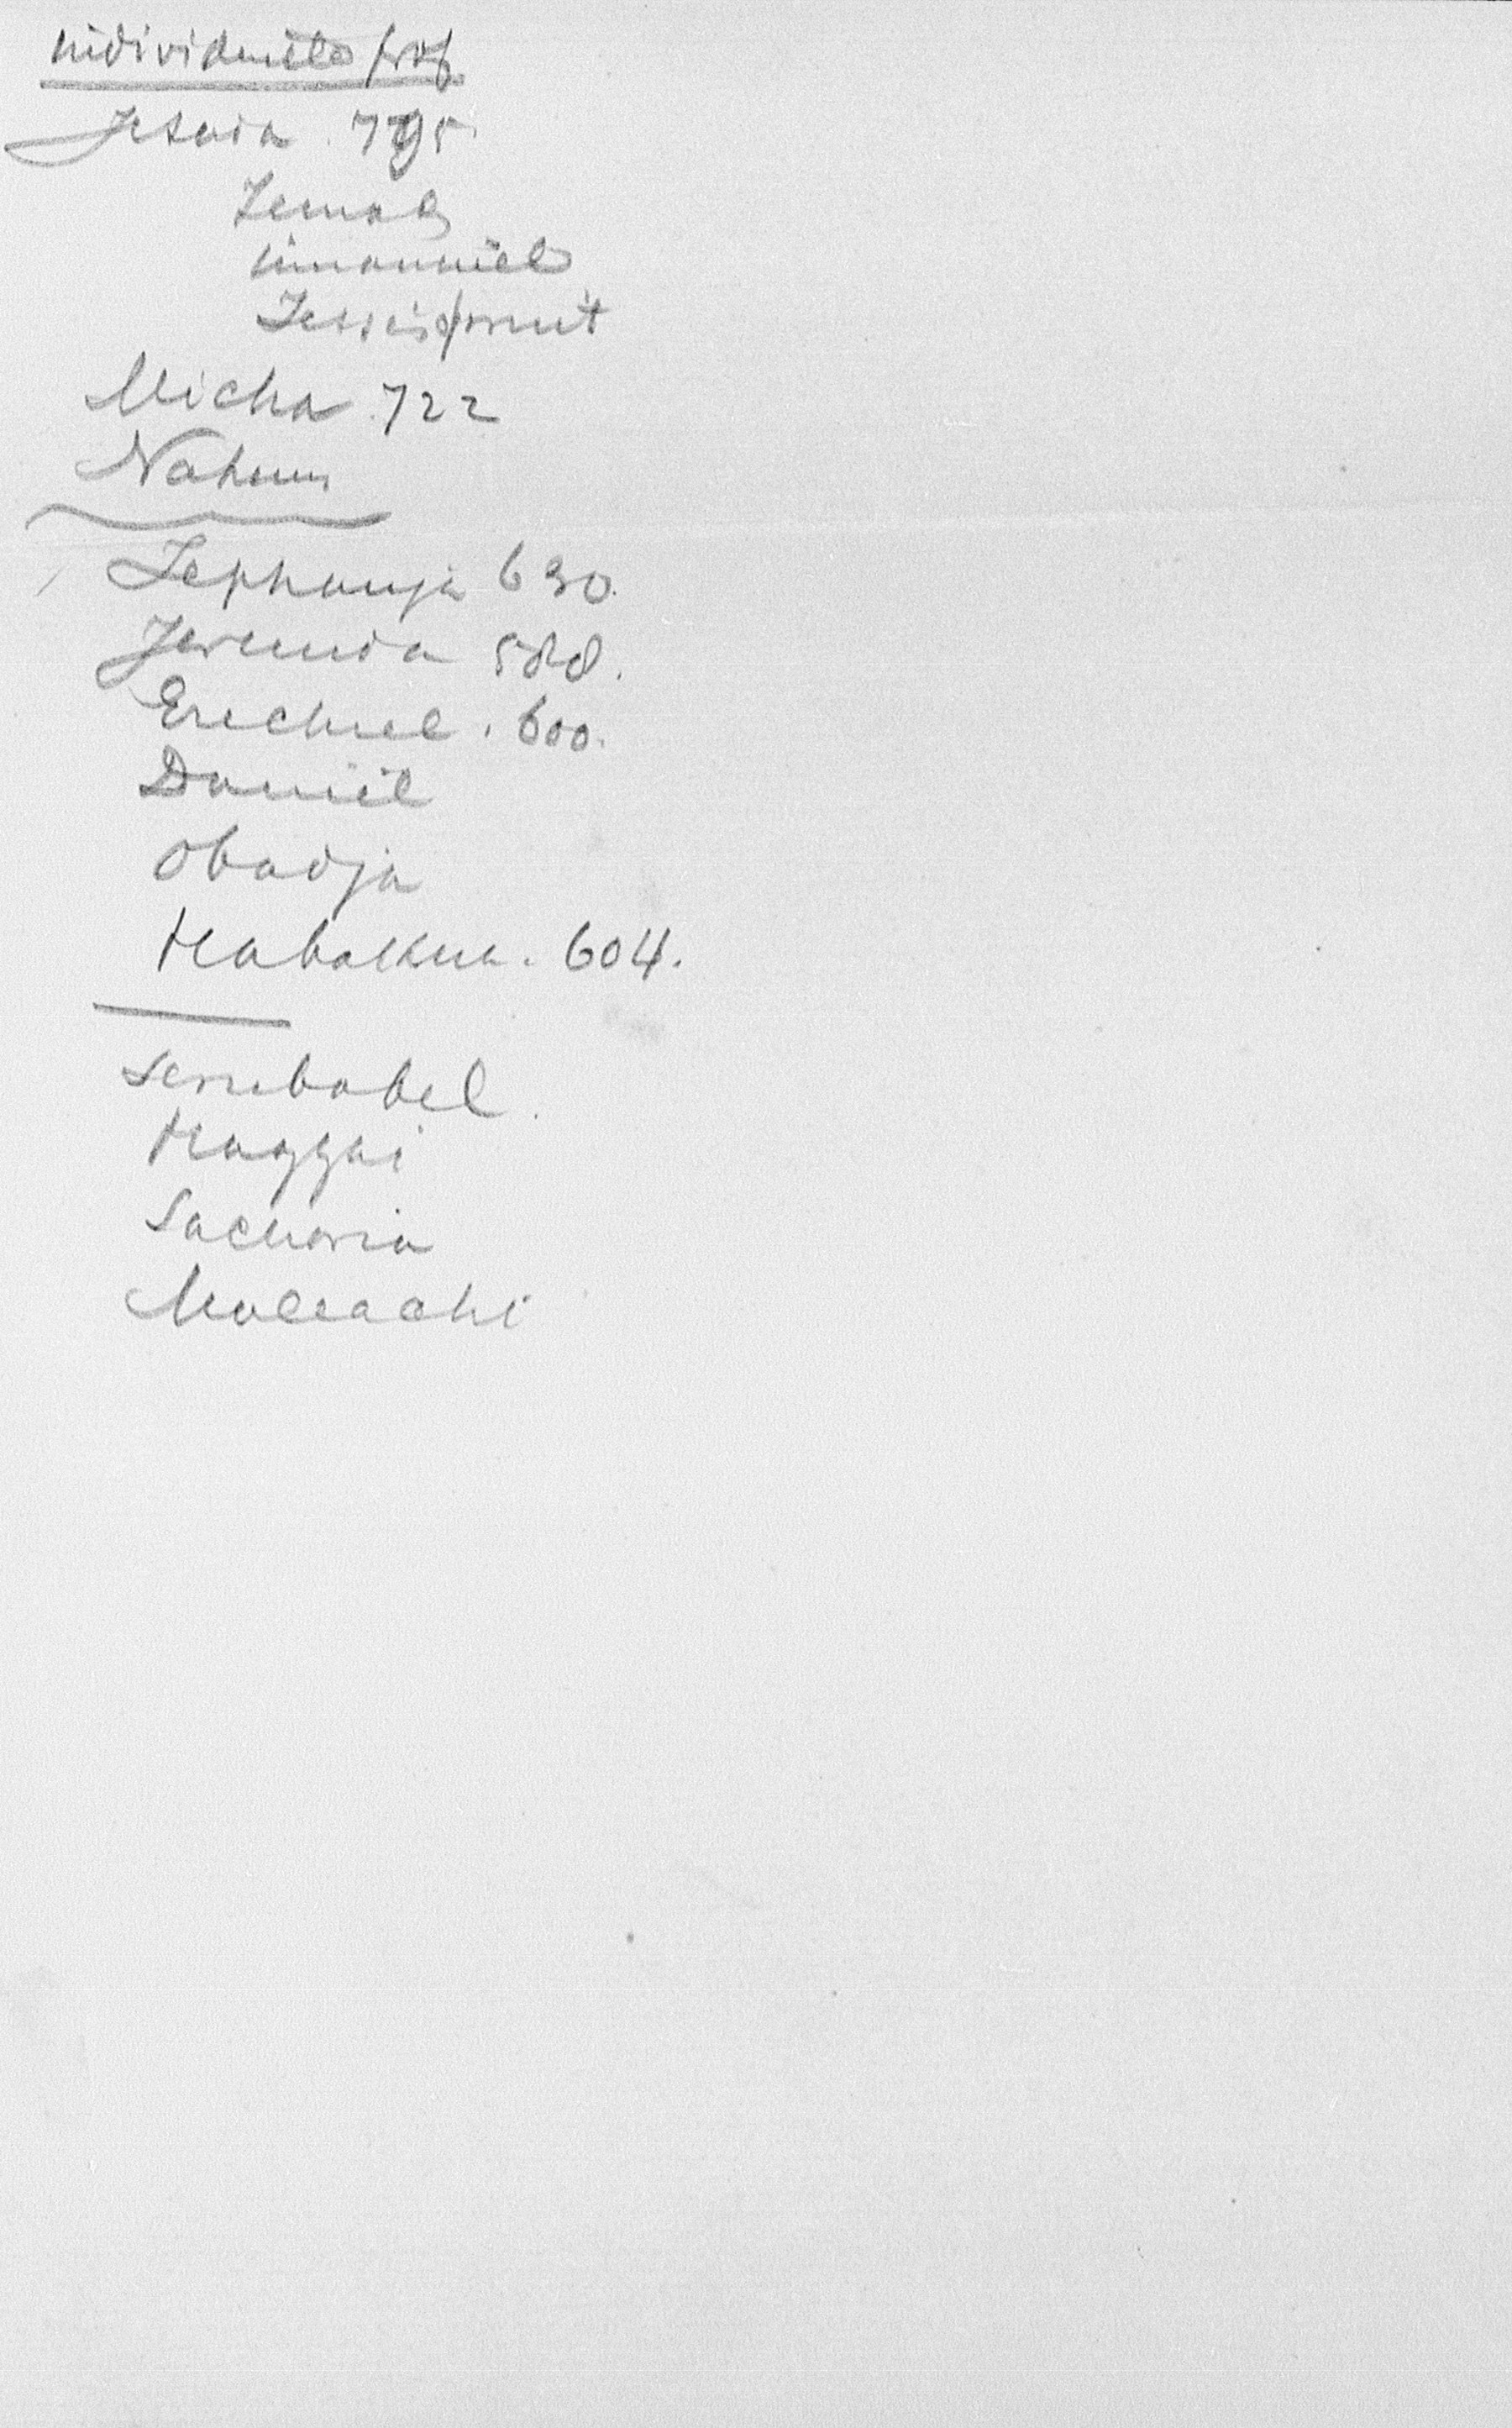 individuele prof
Jesaia. 795.
Zemach
immanuel
Micha. 722
Nahum
Zephanja 630.
Jeremia 588.
Ezechiel. 600.
Daniël
Obadja
Habakuk. 604.
Serubabel.
Haggai
Sacharia
Maleachi